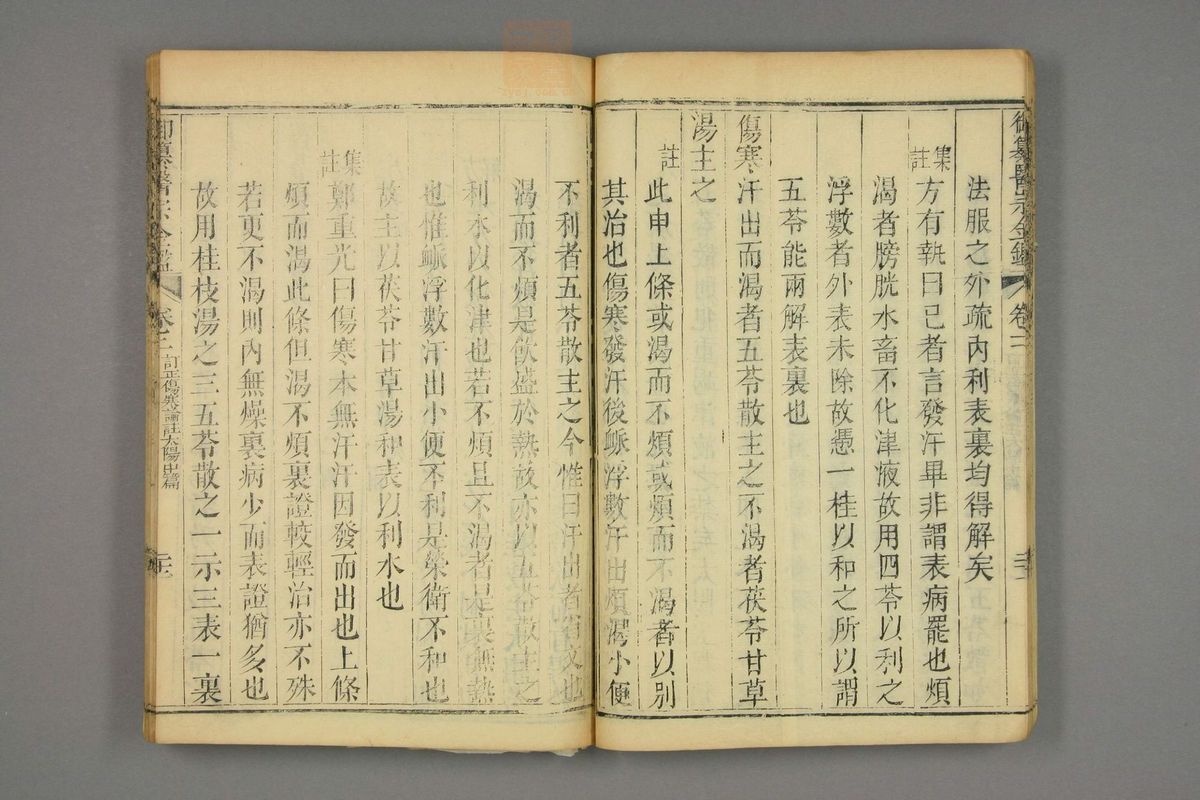 御纂醫宗金鑑 卷二
法服之外疏內利表裏均得解矣
集註 方有執曰已者言發汗畢非謂表病罷也煩
渴者膀胱水畜不化津液故用四苓以利之
浮數者外表未除故憑一桂以和之所以謂
五苓能兩解表裏也
傷寒汗出而渴者五苓散主之不渴者茯苓甘草
湯主之
註 此申上條或渴而不煩或煩而不渴者以別
其治也傷寒發汗後脈浮數汗出煩渴小便
不利者五苓散主之今惟曰汗出者省文也
渴而不煩是飲盛於熱故亦以五苓散主之
利水以化津也若不煩且不渴者是裏無熱
也惟脈浮數汗出小便不利是榮衛不和也
故主以茯苓甘草湯和表以利水也
集註 鄭重光曰傷寒本無汗汗因發而出也上條
煩而渴此條但渴不煩裏證較輕治亦不殊
若更不渴則內無燥裏病少而表證猶多也
故用桂枝湯之三五苓散之一示三表一裏
御纂醫宗金鑑 卷二 訂正傷寒論註太陽中篇